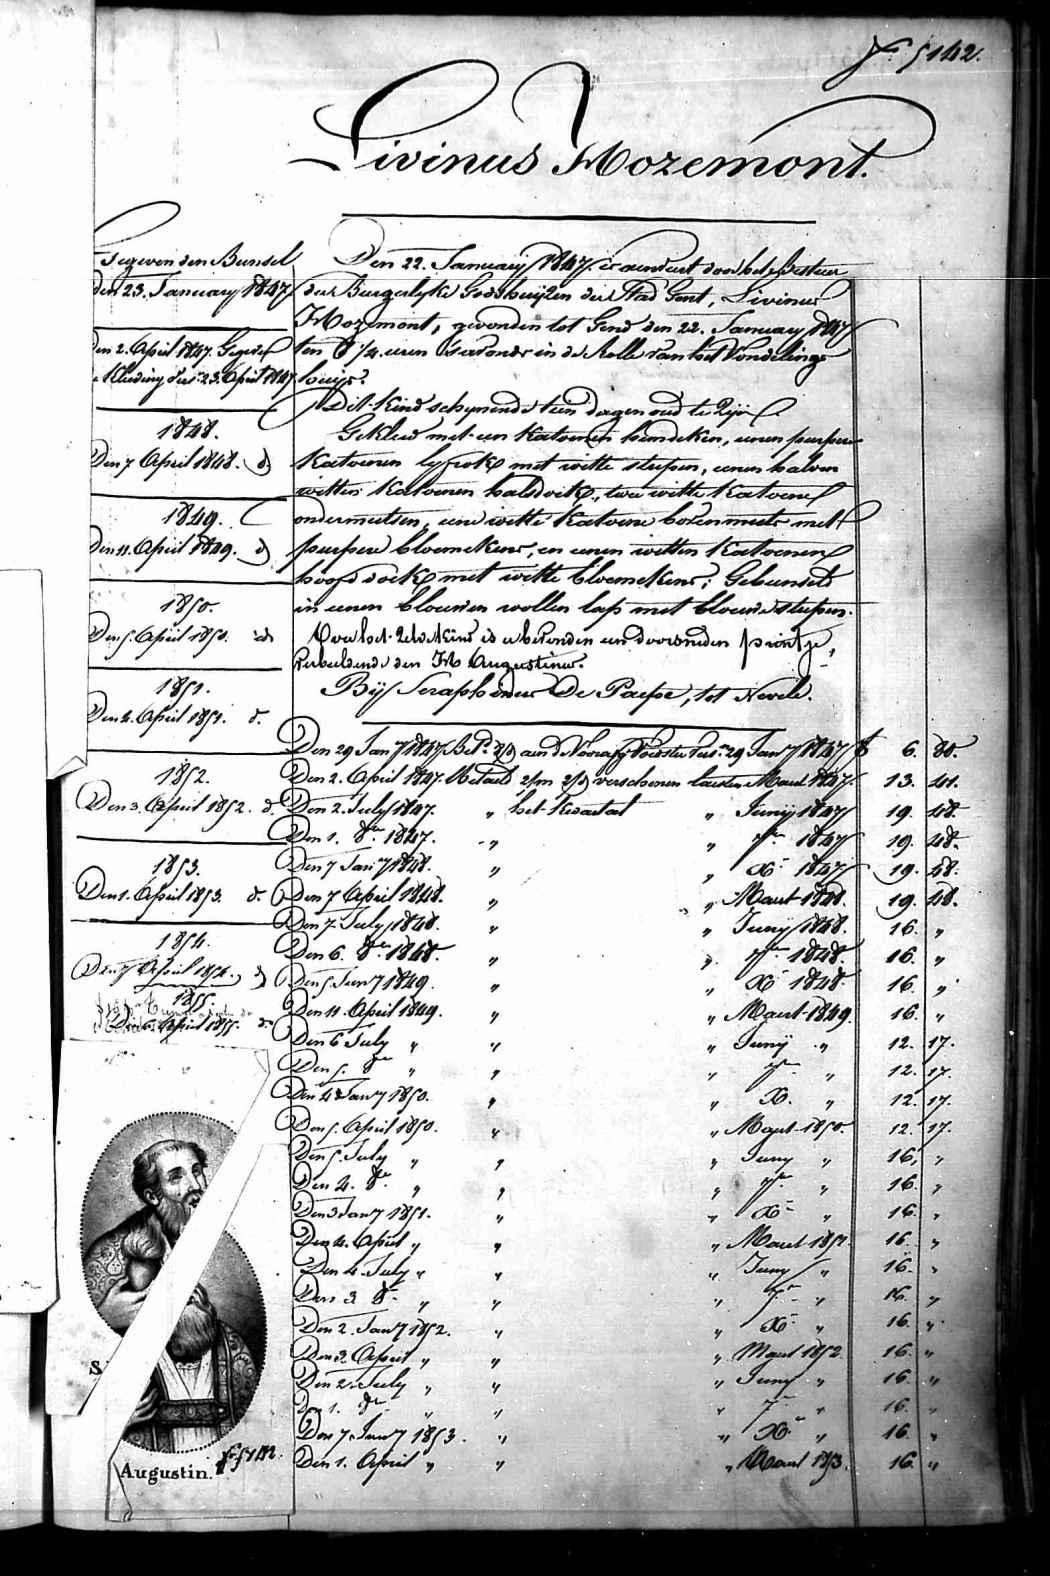 5142.
Livinus Mozemont.
Gegeven den Bunsel
den 23. January 1847
Den 2. April 1847. Gegeven
Kleeding Vers. 23. April 1847
1848.
Den 7 April 1848. d
1849.
Den 11. April 1849. d
1850.
Den 5. April 1850. id
1851.
Den 4. April 1851. d.
1852.
Den 3. April 1852. d.
1853.
Den 1. April 1853. d.
1854.
Den 7 April 1854. d
1855.
April 1855. d
Den 22. January 1847. is aenveirt door het Bestuer
der Burgerlyke Godshuyzen der Stad Gent, Livinus
Mozemont, gevonden tot Gend den 22. January 1847
ten 8 1/4 uren 's avonds in de Rolle van het Vondelings
huys.
Dit kind schynende een dagen oud te Zyn.
Gekleed met een katoenen hemdeken, eenen purpere
katoenen lyfrok met witte streepen, eenen halven
witten katoenen halsdoek, twee witte katoene
ondermutsen, eene witte katoene bovenmuts met
purpere bloemekens, en eenen witten katoenen
hoofddoek met witte bloemekens; Gebunseld
in eenen blouwen wollen lap met blouwe streepen.
Voor het Zelve kind is bevonden een doorsneden printje,
verbeeldende den H. Augustinus.
Bij Seraphinus De Paepe, tot Nevele.
Den 29 Jany 1847 Bet. aen de Voorz. Voedster Vers. 29 Jany 1847 f 6. 80.
Den 2. April 1847. Betaeld 2/m 2/d verschenen lasten Maart 1847. 13. 41.
Den 2. July 1847. " het kwartal " Juny 1847 19. 48.
Den 1. 8er 1847. " " 7er 1847 19. 48.
Den 7 Jany 1848. " " Xr 1847 19. 48.
Den 7 April 1848. " " Maart 1848. 19. 48.
Den 7. July 1848. " " Juny 1848. 16. "
Den 6. 8er 1848. " " 7er 1848. 16. "
Den 5. Jany 1849. " " Xr 1848. 16. "
Den 11. April 1849. " " Maart 1849. 16. "
Den 6 July " " " Juny " 12. 17.
Den 5. 8er " " " 7er " 12. 17.
Den 4 Jany 1850. " " X. " 12. 17.
Den 5. April 1850. " " Maart 1850. 12. 17.
Den 5. July " " " Juny " 16. "
Den 4. 8er " " " 7er " 16. "
Den 3 Jany 1851. " " Xr " 16. "
Den 4. April " " " Maart 1851. 16. "
Den 4. July " " " Juny " 16. "
Den 3. 8er " " " 7er " 16. "
Den 2. Jany 1852. " " Xr " 16. "
Den 3. April " " " Maart 1852. 16. "
Den 2. July " " " Juny " 16. "
1. 8er " " " 7er " 16. "
Den 7. Jany 1853. " " Xr " 16. "
Den 1. April " " " Maart 1853. 16. "
S.
Augustin.
5142.